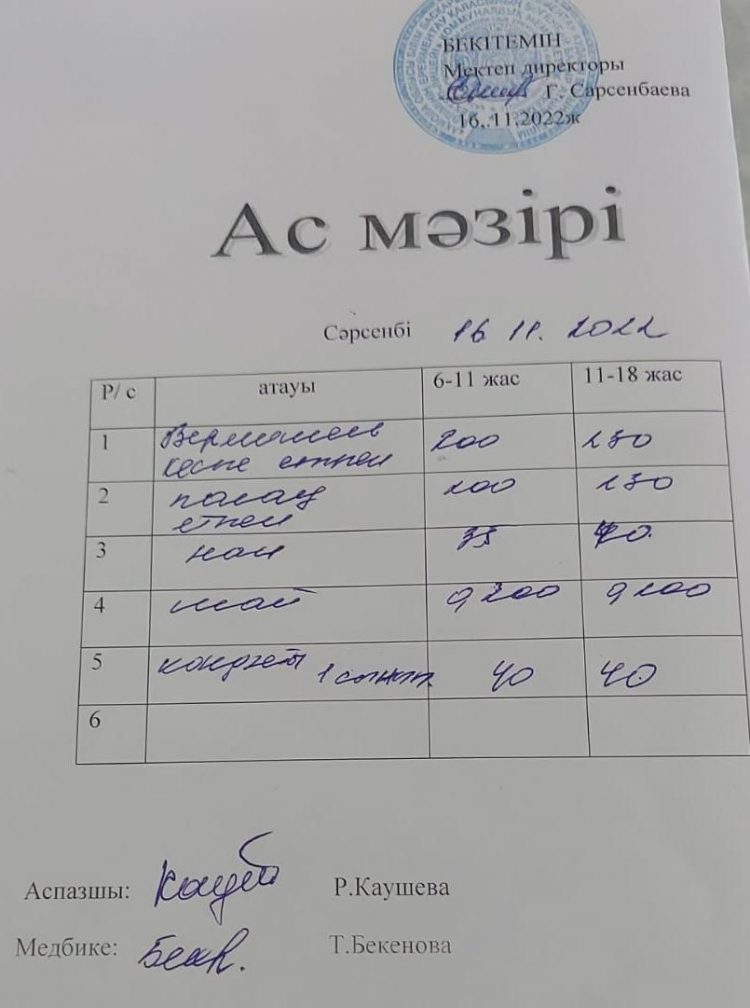 БЕКІТЕМІН
Мектеп директоры
Г. Сарсенбаева
16,.11.2022ж
Ас мәзірі
Сәрсенбі 16 11. 2022
Р/ с атауы 6-11 жас 11-18 жас
1 Вермишель 200 250
кеспе етпен
2 палау 200 250
етпен
3 нан 35 40.
4 шай 0,200 0,200
5 конфеты 1 сынып. 40 40
6
Аспазшы: Р.Каушева
Медбике: Т.Бекенова